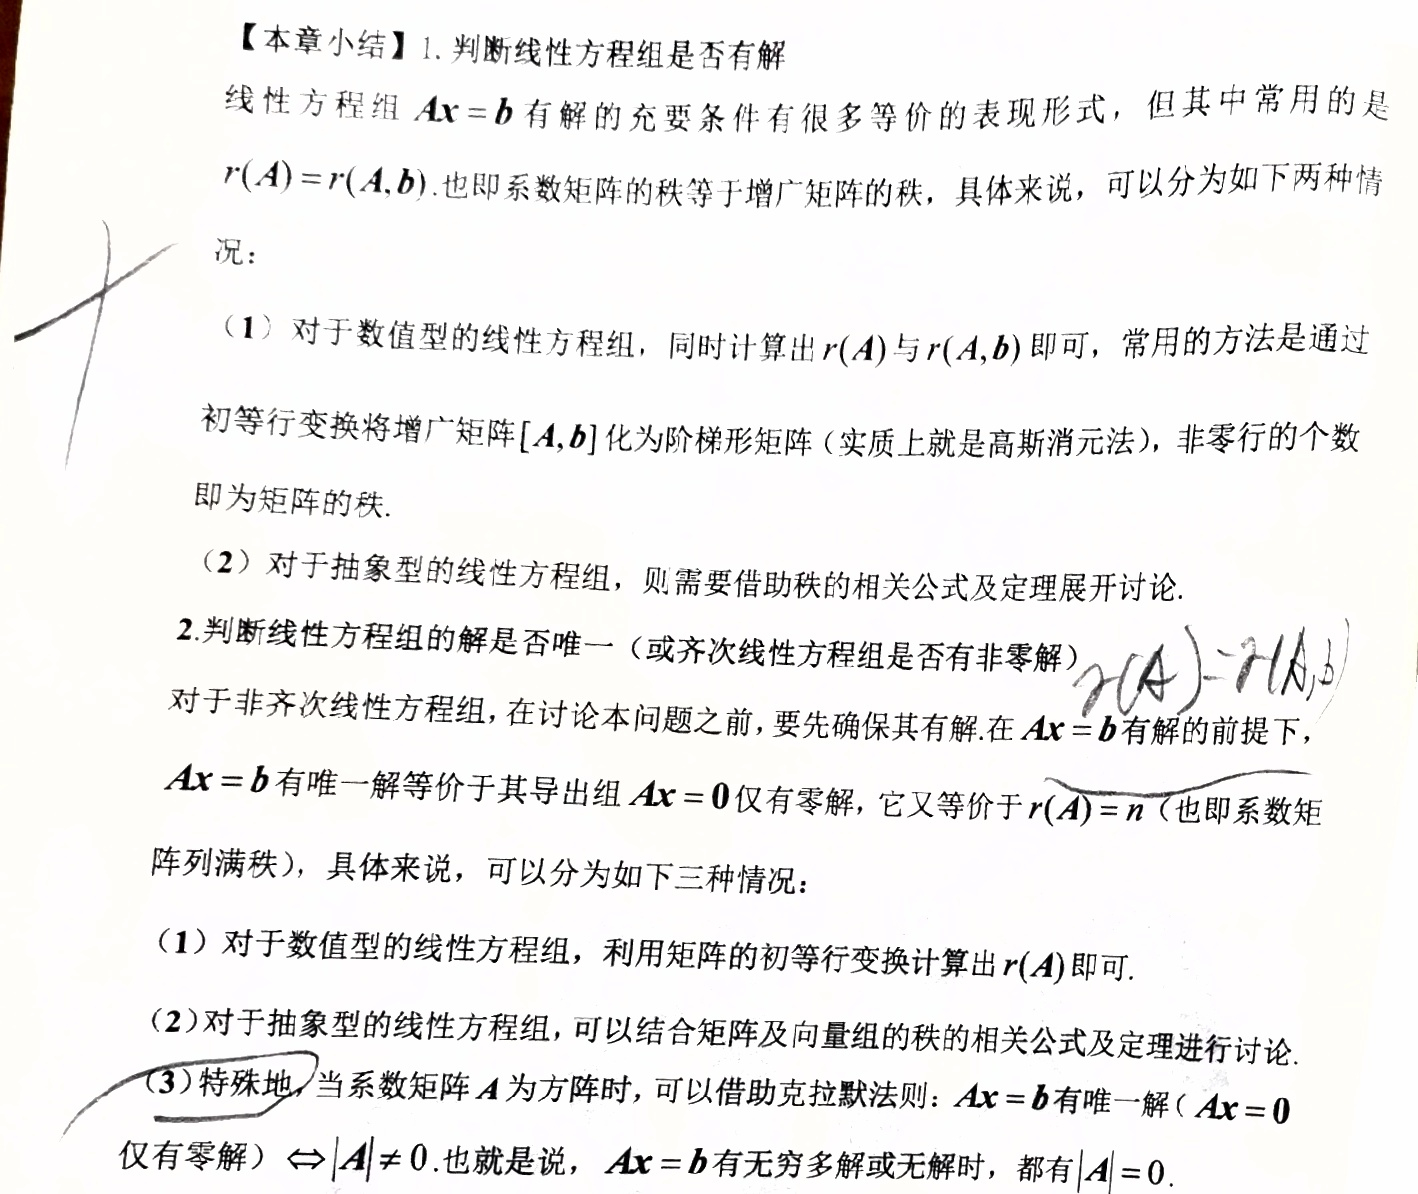 【本章小结】1.判断线性方程组是否有解
线性方程组 Ax = b 有解的充要条件有很多等价的表现形式，但其中常用的是
r(A)=r(A,b).也即系数矩阵的秩等于增广矩阵的秩，具体来说，可以分为如下两种情
况：
（1）对于数值型的线性方程组，同时计算出r(A)与r(A,b)即可，常用的方法是通过
初等行变换将增广矩阵[A,b]化为阶梯形矩阵（实质上就是高斯消元法），非零行的个数
即为矩阵的秩.
（2）对于抽象型的线性方程组，则需要借助秩的相关公式及定理展开讨论.
2.判断线性方程组的解是否唯一（或齐次线性方程组是否有非零解）
r(A)=r(A,b)
对于非齐次线性方程组，在讨论本问题之前，要先确保其有解.在 Ax = b有解的前提下，
Ax = b有唯一解等价于其导出组 Ax = 0仅有零解，它又等价于r(A)=n（也即系数矩
阵列满秩），具体来说，可以分为如下三种情况：
（1）对于数值型的线性方程组，利用矩阵的初等行变换计算出r(A)即可.
（2）对于抽象型的线性方程组，可以结合矩阵及向量组的秩的相关公式及定理进行讨论.
（3）特殊地，当系数矩阵 A 为方阵时，可以借助克拉默法则：Ax = b有唯一解（ Ax = 0
仅有零解）⇔|A|≠0.也就是说，Ax = b有无穷多解或无解时，都有|A|=0.